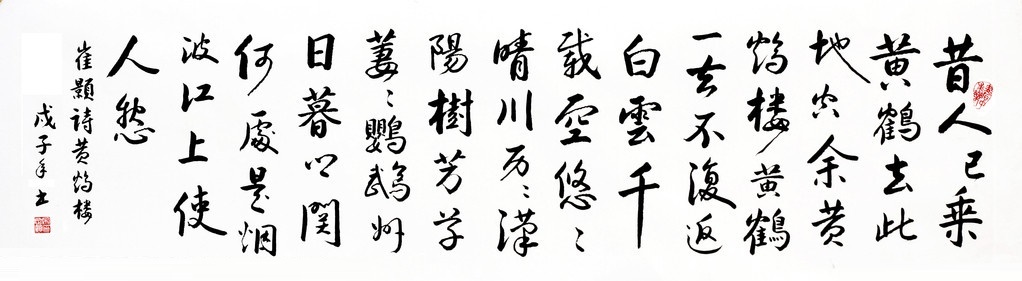 昔人已乘
黄鶴去此
地空余黄
鹤楼黄鶴
一去不復返
白雲千
載空悠々
晴川历々漢
陽樹芳草
萋々鸚鵡州
日暮乡関
何處是烟
波江上使
人愁
崔顥詩黄鹤楼
戊子年书